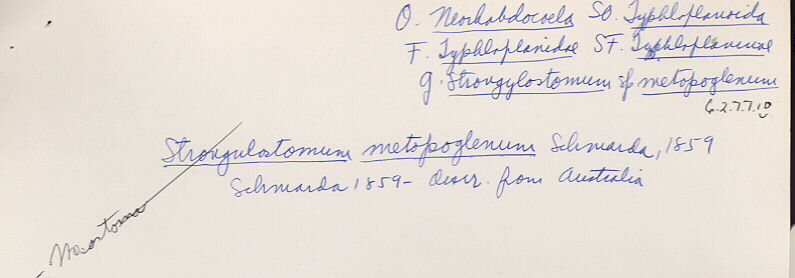 O. Neorhabdocoela SO. Typhloplanoida
F. Typhloplanidae SF. Typhloplaninae
g. Strongylostomum sp metopoglenum
6.2.7.7.10
Strongulostomum metopoglenum Schmarda, 1859
Schmarda 1859- descr. from Australia
- Mesostoma